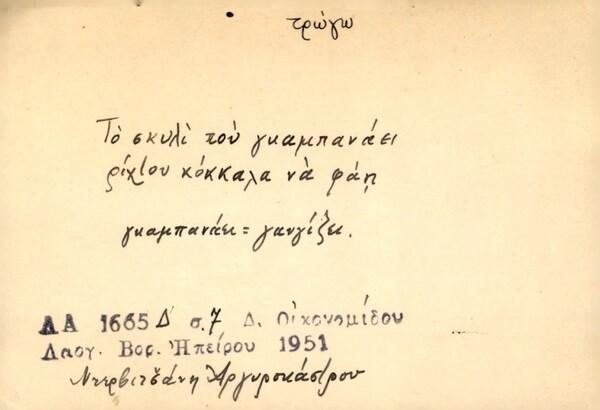 τρώγω
Τὸ σκυλὶ ποὺ γκαμπανάει
ρίχτου κόκκαλα νὰ φάῃ
γκαμπανάει = γαυγίζει.
ΛΑ 1665 Δ σ. 7 Δ. Οἰκονομίδου
Λαογ. Βορ. Ἠπείρου 1951
Ντερβιτσάνη Ἀργυροκάστρου